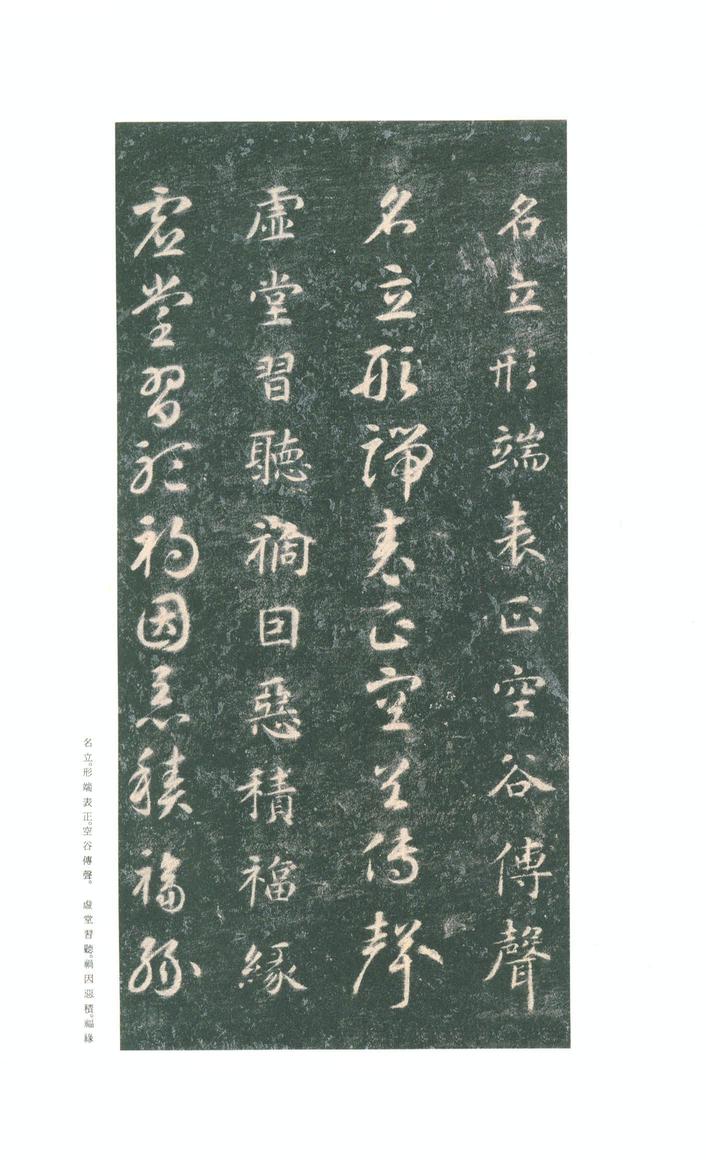 名立形端表正空谷傳聲
名立形端表正空谷传聲
虛堂習聽禍因惡積福緣
虛堂習聽禍因惡積福緣
名立。形端表正。空谷傳聲。虛堂習聽。禍因惡積。福緣